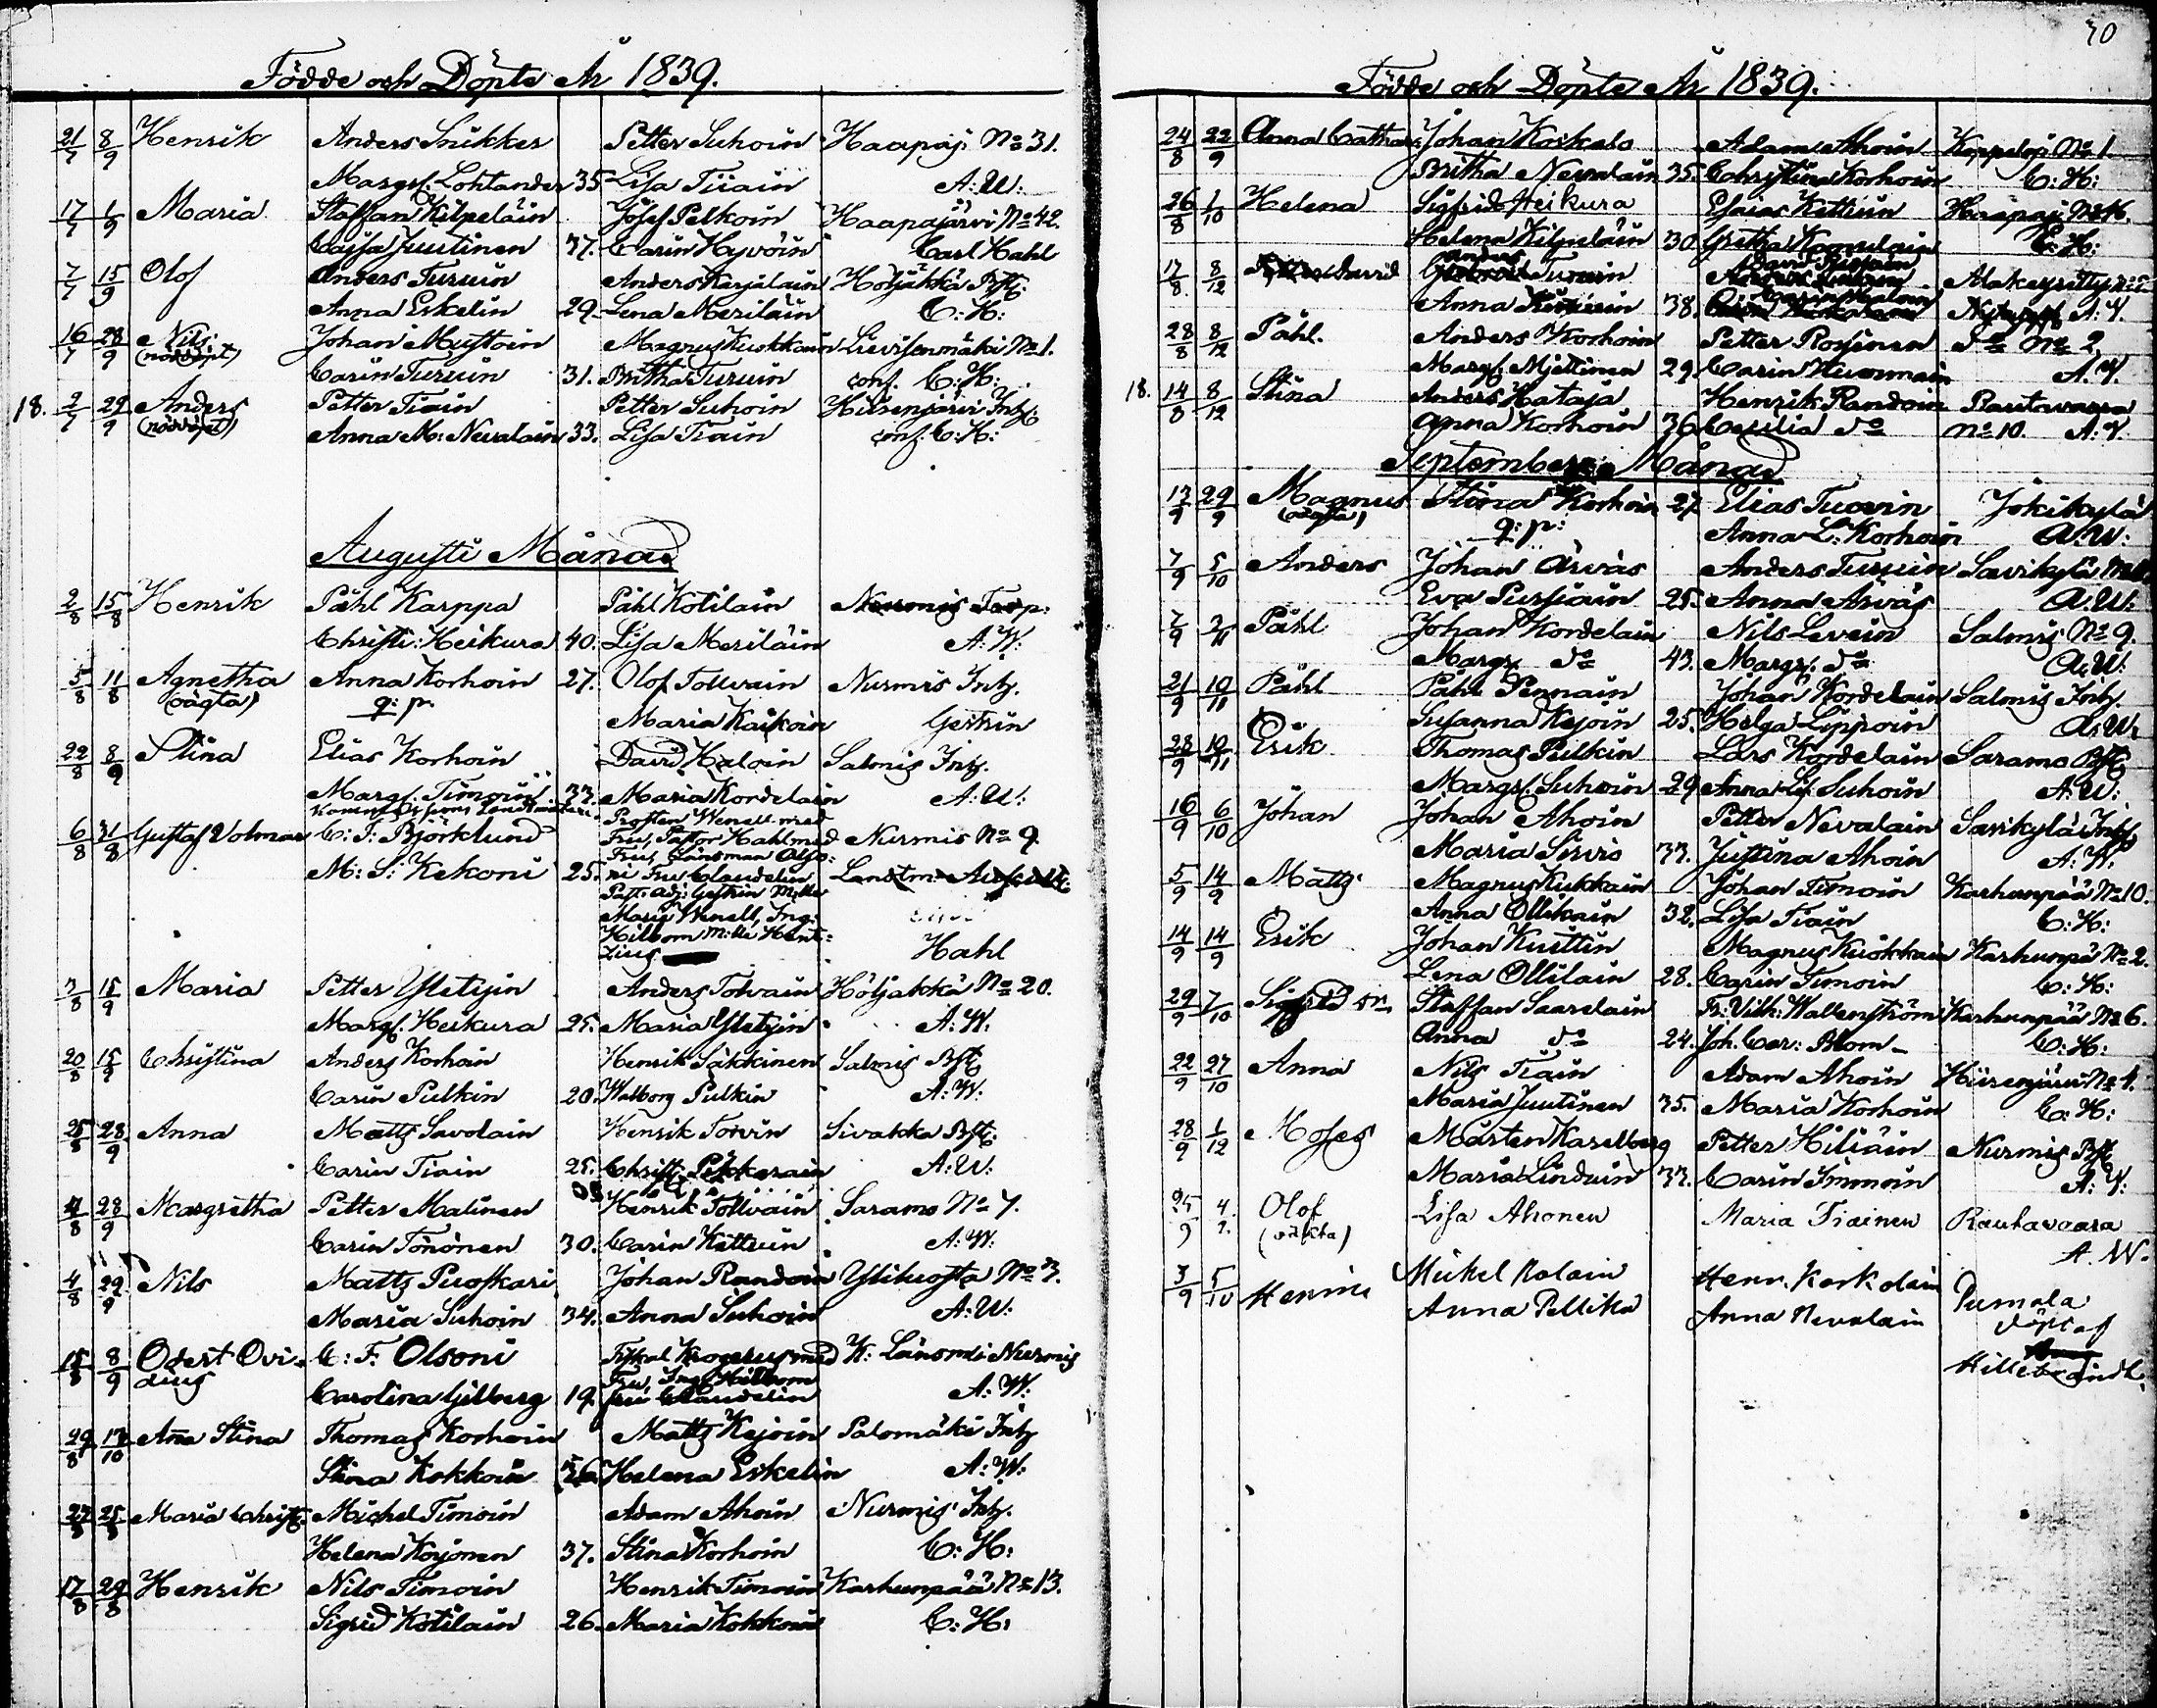 Födde och Döpte År 1839.
21/7 8/9 Henrik Anders Snikker Petter Suhoin Haapaj: No 31.
Margr. Lohlander 35 Lisa Tiiain A: W:
17/7 1/9 Maria Staffan Kilpeläin Josef Pelkoin Haapajärvi No 42.
Cajsa Juutinen 37. Carin Hyvöin Carl Hahl
7/7 15/9 Olof Anders Turuin Anders Karjalain Höljäkkä Bst:
Anna Eskelin 29. Lena Meriläin C: H:
16/7 28/9 Nils Johan Mustoin Magnus Kuokkain Lievisenmäki No 1.
(nöddöpt) Carin Turuin 31. Britha Turuin conf. C: H:
18. 2/7 29/9 Anders Petter Tiain Petter Suhoin Hiirenjärvi Inh:
(nöddöpt) Anna M: Nevalain 33. Lisa Tiain conf: C: H:
Augusti Månad
2/8 15/8 Henrik Påhl Karppa Påhl Kotilain Nurmis Torp:
Christi: Heikura 40. Lisa Meriläin A: W:
5/8 11/8 Agnetha Anna Korhoin 27. Olof Tolvain Nurmis Inh.
(oägta) q: p. Maria Kaikoin Gestrin
22/8 8/9 Stina Elias Korhoin David Haloin Salmis Inh.
Margr. Timoin 33. Maria Kordelain A: W:
Prosten Wenell med
6/8 31/8 Gustaf Volmar C: J: Björklund Fru, Pastor Hahl med Nurmis No 9.
Fru, Länsman Olso:
M: S: Kekoni 25. ni Fru Claudelin
Past: adj: Gestrin M:lle
Maria Wenell, Ing:
Hilbom M:lle Hent:
zius Hahl
3/8 15/9 Maria Petter Yletyin Anders Tolvain Höljakkä No 20.
Margr. Heikura 25. Maria Yletyin A: W:
20/8 15/9 Christina Anders Korhoin Henrik Säkkinen Salmis Bst:
Carin Pulkin 20. Walborg Pulkin A: W:
25/8 28/9 Anna Matts Savolain Henrik Torvin Sivakka Bst:
Carin Tiain 25. Christ: Pikkarain A: W:
4/8 28/9 Margretha Petter Malinen Henrik Tollvain Saramo No 7.
Carin Tönönen 30. Carin Kettuin A: W:
4/8 29/9 Nils Matts Puroskari Johan Randoin Ylikuosta No 3.
Maria Suhoin 34. Anna Suhoin A: W:
15/8 8/9 Odert Ovi- C: F: Olsoni Fiskal Krogerus med K: Länsm: i Nurmis
dius Fru, Ing: Hilbom
Carolina Gilberg 19. fru Claudelin A: W:
29/8 13/10 Anna Stina Thomas Korhoin Matts Kejoin Palomäki Inh
Stina Kokkoin 36 Helena Eskelin A: W:
27/8 25/8 Maria Christ: Michel Timoin Adam Ahoin Nurmis Inh.
Helena Korjonen 37. Stina Korhoin C: H:
17/8 29/8 Henrik Nils Timoin Henrik Timoin Karhunpää No 13.
Sigrid Kotilain 26. Maria Kokkoin C: H:
70
Födde och Döpte År 1839.
24/8 22/9 Anna Cathar: Johan Koskelo Adam Ahoin Koppeloj: No 1.
Britha Nevalain 35. Christina Korhoin C: H:
26/8 1/10 Helena Sigfrid Heikura Esaias Kettuin Haapaj:
Helena Kilpeläin 30. Gretha Komulain C: H:
17/8 8/12 David Anders Turuin David Alakeyritty No 2
Anna 38. A: Y.
28/8 8/12 Påhl. Anders Korhoin Petter Rossinen do No 2.
Margr. Mjettinen 29. Carin Huusmain A. Y.
18. 14/8 8/12 Stina Anders Hataja Henrik Randoin Rautavaara
Anna Korhoin 36 Cecilia do No 10. A: Y.
September Månad
13/9 29/9 Magnus Stina Korhoin 27. Elias Tuovin Jokikylä
(oägta) q: p: Anna L: Korhoin A: W:
7/9 5/10 Anders Johan Arväs Anders Turuin Savikylä
Eva Pursiain 25. Anna Arväs A: W:
7/9 3/11 Påhl Johan Kordelain Nils Levein Salmis No 9.
Margr. do 43. Margr. do A: W:
21/9 10/11 Påhl Påhl Pennain Johan Kordelain Salmis Inh.
Susanna Kejoin 25. Helga Lipponin A: W:
28/9 10/11 Erik Thomas Pulkin Lars Kordelain Saramo Bst
Margr. Suhoin 29 Anna Lis: Suhoin A: W:
16/9 6/10 Johan Johan Ahoin Petter Nevalain Savikylä Inh
Maria Sirviö 33. Justina Ahoin A: W:
5/9 14/9 Matts Magnus Kukkain Johan Timoin Karhunpää No 10.
Anna Ollikain 32. Lisa Tiain C: H:
14/9 14/9 Erik Johan Kuittin Magnus Kuokkain Karhunpä No 2.
Lena Ollilain 28. Carin Timoin C: H:
29/9 7/10 Sigfrid Staffan Saarelain Fr: Vilh: Wallenström Karhunpää No 6.
Anna do 24. Joh. Car: Blom C: H:
22/9 27/10 Anna Nils Tiain Adam Ahoin Hiirenjärvi No 4.
Maria Juutinen 35. Maria Korhoin C: H:
28/9 1/12 Moses Mårten Karelberg Petter Hiliäin Nurmis Bst
Maria Linduin 33. Carin Immoin A: Y:
25/9 4/2. Olof Lisa Ahonen Maria Tiainen Rautavaara
(oäkta) A. W.
3/9 5/10 Mickel Rolain Henr. Karkolain Pumala
Anna Pellika Anna Nevalain döpt af
Hillebrandt.